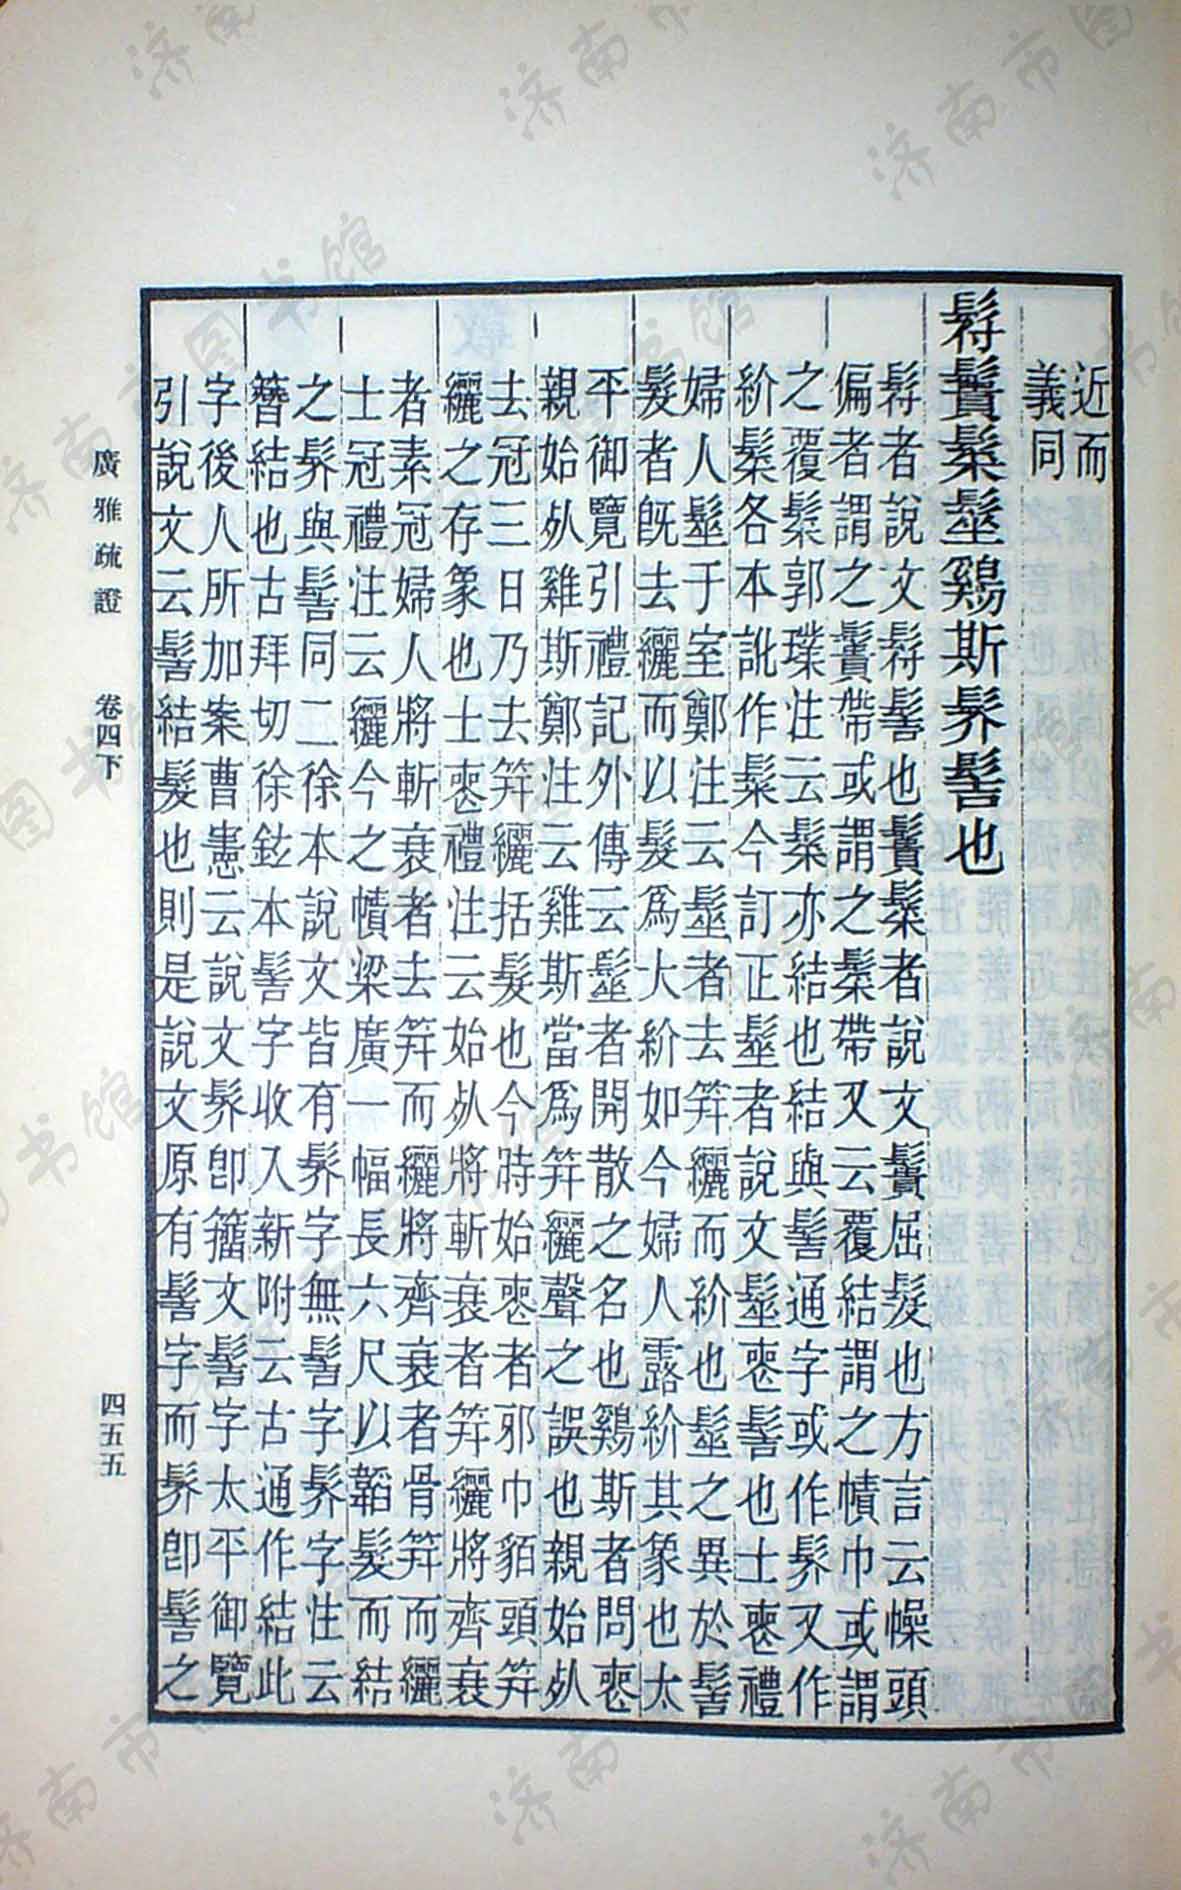 近而
義同
䰎髤髽鷄斯䯰髻也
者說文髻也䰎髤者說文䰎屈髮也方言云幧頭
偏者謂之䰎帶或謂之髤帶又云覆結謂之幘巾或謂
之覆髤郭璞注云髤亦結也結與髻通字或作䯰又作
紒髤各本訛作今訂正髽者說文髽喪髻也士喪禮
婦人髽于室鄭注云髽者去笄纚而紒也髽之異於髻
髮者旣去纚而以髮爲大紒如今婦人露紒其象也太
平御覽引禮記外傳云髽者開散之名也鷄斯者問喪
親始死雞斯鄭注云雞斯當爲笄纚聲之誤也親始死
去冠三日乃去笄纚括髮也今時始喪者邪巾貊頭笄
纚之存象也士喪禮注云始死將斬衰者笄纚將齊衰
者素冠婦人將斬衰者去笄而纚將齊衰者骨笄而纚
士冠禮注云纚今之幘梁廣一幅長六尺以韜髮而結
之䯰與髻同二徐本說文皆有䯰字無髻字䯰字注云
簪結也古拜切徐鉉本髻字收入新附云古通作結此
字後人所加案曹憲云說文䯰卽籀文髻字太平御覽
引說文云髻結髮也則是說文原有髻字而䯰卽髻之
廣雅疏證　卷四下　四五五